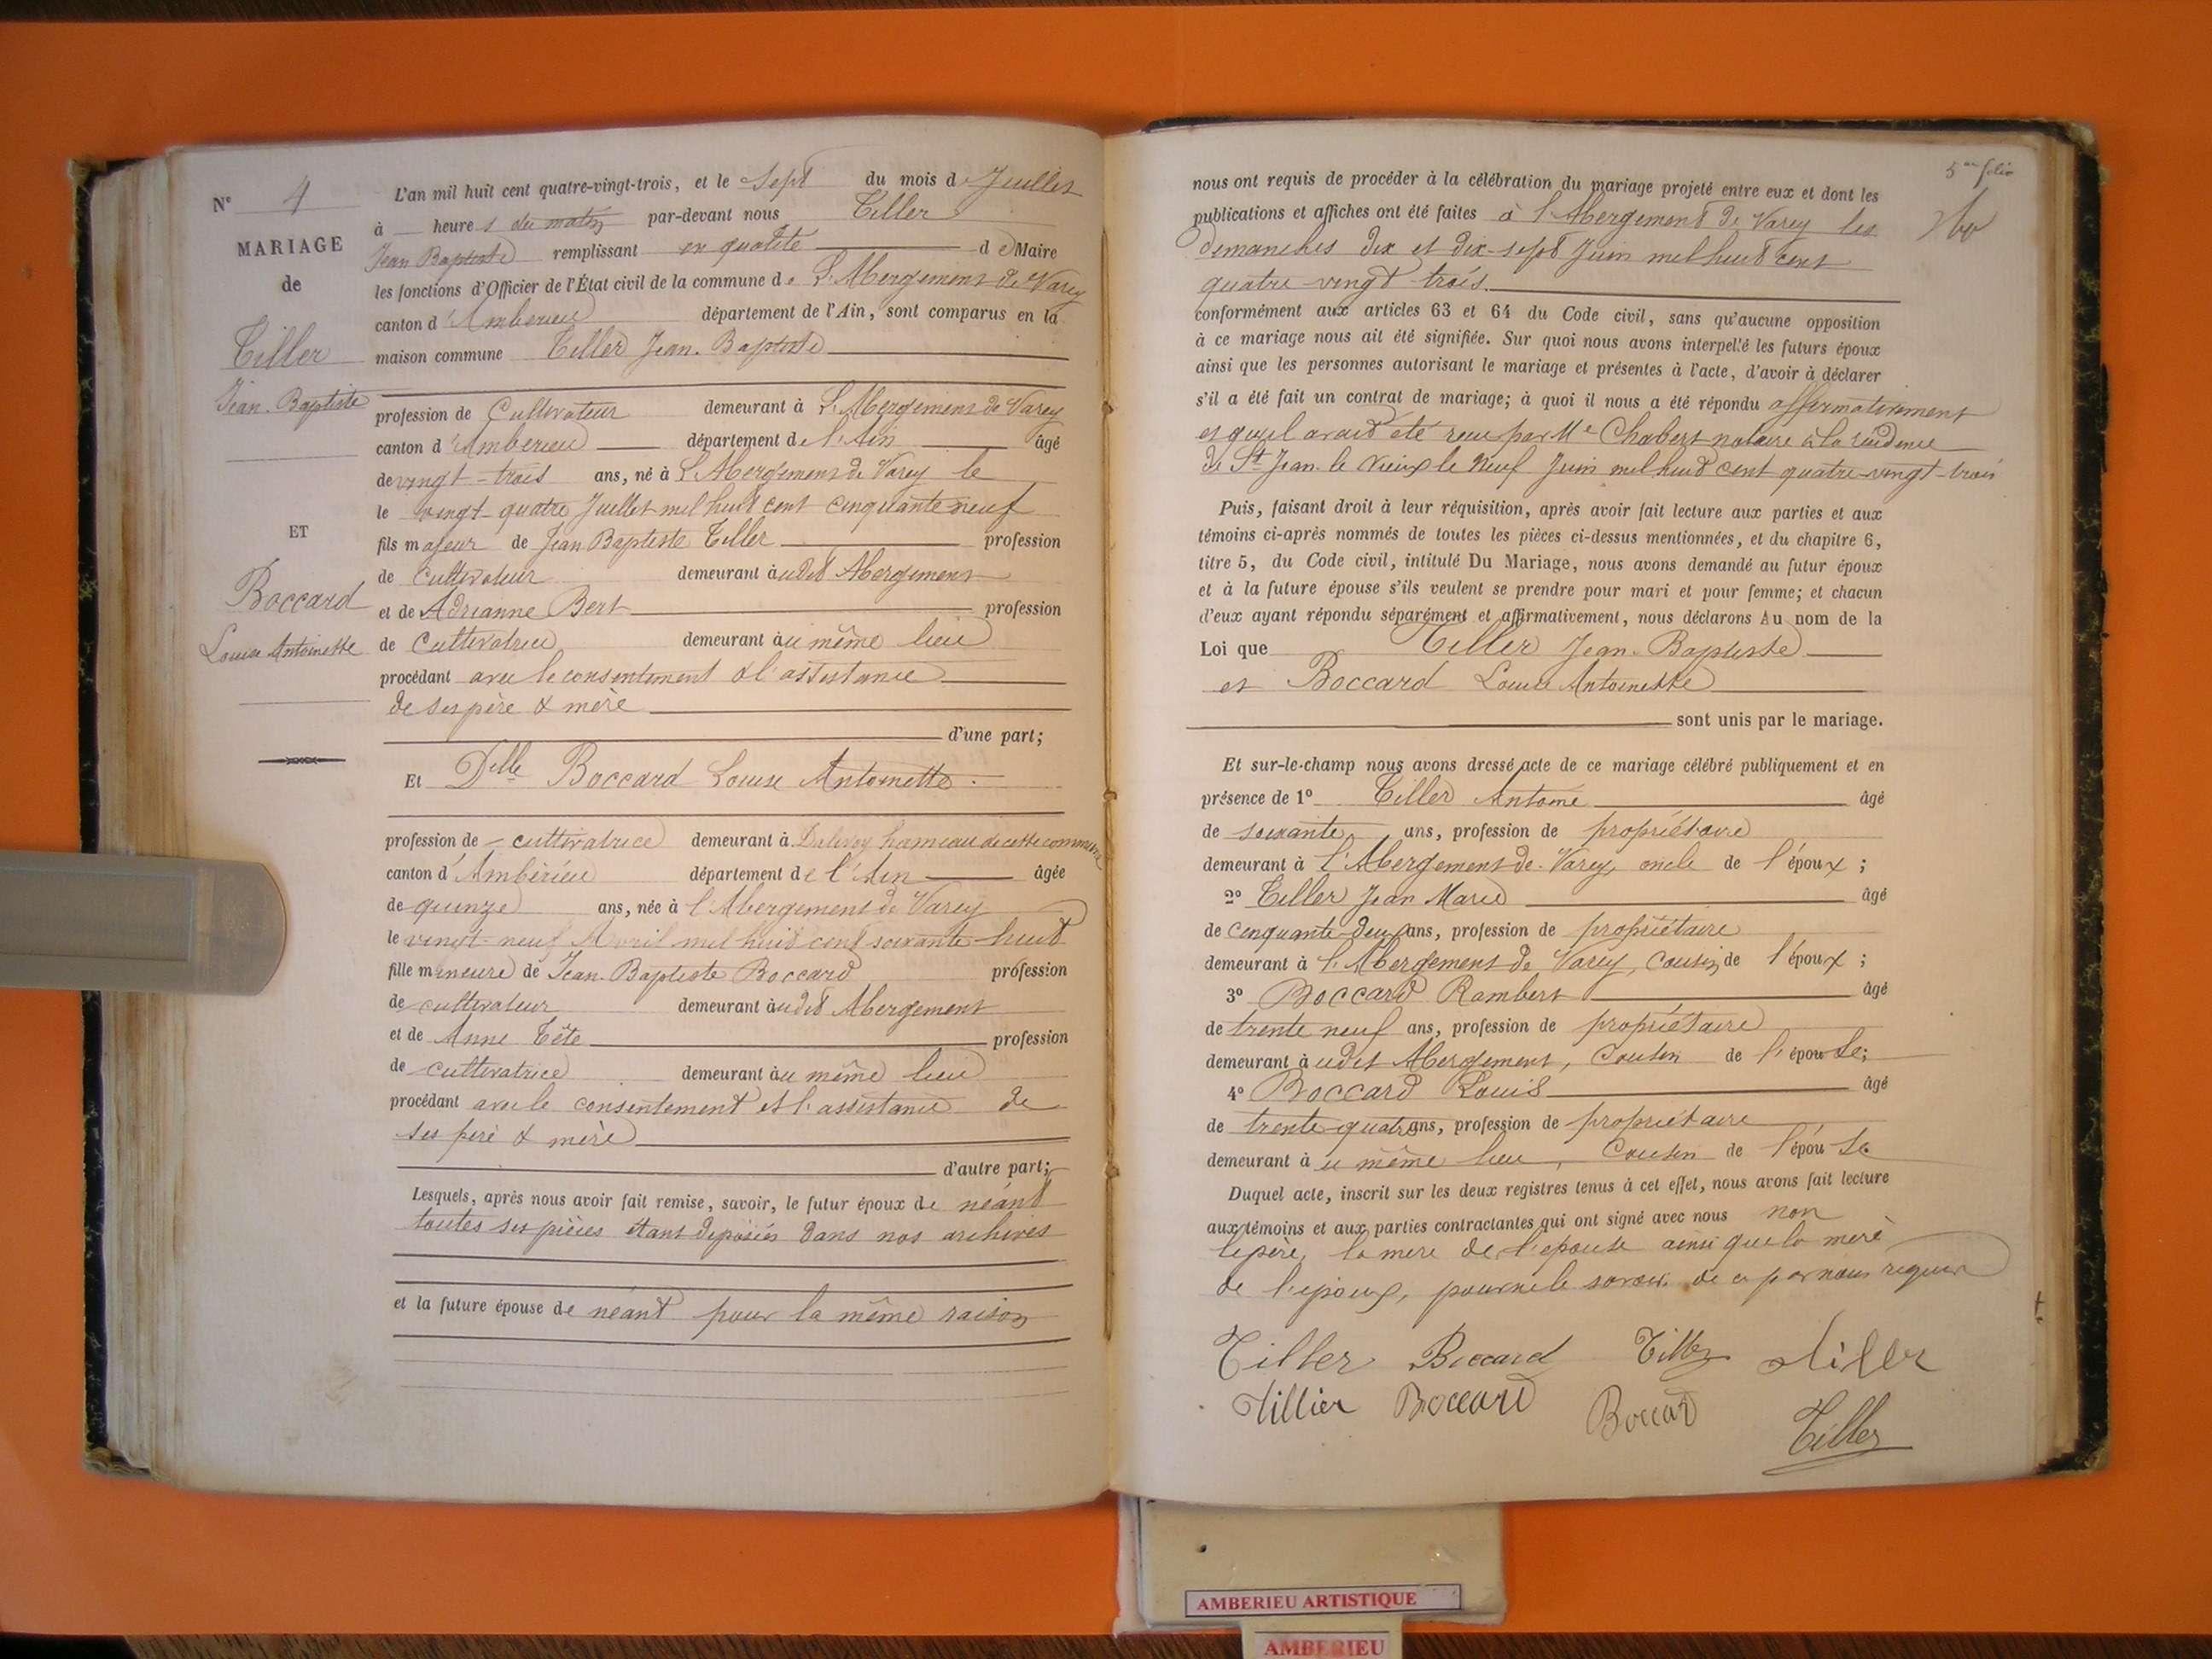 N° 4
MARIAGE
de
Tiller
Jean-Baptiste
ET
Boccard
Louise Antoinette
L'an mil huit cent quatre-vingt-trois, et le Sept du mois d Juillet
à heures du matin par-devant nous Tiller
Jean Baptiste remplissant en qualité de Maire
les fonctions d'Officier de l'État civil de la commune de L'Abergement de Varey
canton d'Ambérieu département de l'Ain, sont comparus en la
maison commune Tiller Jean-Baptiste
profession de Cultivateur demeurant à L'Abergement de Varey
canton d'Ambérieu département de l'Ain âgé
de vingt-trois ans, né à L'Abergement de Varey le
le vingt-quatre Juillet mil huit cent cinquante neuf
fils majeur de Jean Baptiste Tiller profession
de cultivateur demeurant audit Abergement
et de Adrianne Bert profession
de Cultivatrice demeurant au même lieu
procédant avec le consentement & l'assistance
de ses père & mère
d'une part;
Et Delle Boccard Louise Antoinette
profession de cultivatrice demeurant à Dalivoy hameau de cette commune
canton d'Ambérieu département de l'Ain âgée
de quinze ans, née à l'Abergement de Varey
le vingt-neuf Avril mil huit cent soixante-huit
fille mineure de Jean-Baptiste Boccard profession
de cultivateur demeurant audit Abergement
et de Anne Tête profession
de cultivatrice demeurant au même lieu
procédant avec le consentement et l'assistance de
ses père & mère
d'autre part;
Lesquels, après nous avoir fait remise, savoir, le futur époux de néant
toutes ses pièces étant déposées dans nos archives
et la future épouse de néant pour la même raison
5me folio
nous ont requis de procéder à la célébration du mariage projeté entre eux et dont les
publications et affiches ont été faites à l'Abergement de Varey les
dimanches dix et dix-sept Juin mil huit cent
quatre vingt trois.
conformément aux articles 63 et 64 du Code civil, sans qu'aucune opposition
à ce mariage nous ait été signifiée. Sur quoi nous avons interpellé les futurs époux
ainsi que les personnes autorisant le mariage et présentes à l'acte, d'avoir à déclarer
s'il a été fait un contrat de mariage; à quoi il nous a été répondu affirmativement
et qu'il avait été reçu par Me Chabert notaire à la résidence
de St Jean le Vieux le neuf Juin mil huit cent quatre-vingt-trois
Puis, faisant droit à leur réquisition, après avoir fait lecture aux parties et aux
témoins ci-après nommés de toutes les pièces ci-dessus mentionnées, et du chapitre 6,
titre 5, du Code civil, intitulé Du Mariage, nous avons demandé au futur époux
et à la future épouse s'ils veulent se prendre pour mari et pour femme; et chacun
d'eux ayant répondu séparément et affirmativement, nous déclarons Au nom de la
Loi que Tiller Jean-Baptiste
et Boccard Louise Antoinette
sont unis par le mariage.
Et sur-le-champ nous avons dressé acte de ce mariage célébré publiquement et en
présence de 1° Tiller Antoine âgé
de soixante ans, profession de propriétaire
demeurant à l'Abergement de Varey, oncle de l'époux;
2° Tiller Jean Marie âgé
de cinquante-deux ans, profession de propriétaire
demeurant à l'Abergement de Varey, Cousin de l'époux;
3° Boccard Rambert âgé
de trente neuf ans, profession de propriétaire
demeurant audit Abergement, Cousin de l'épouse;
4° Boccard Louis âgé
de trente-quatre ans, profession de propriétaire
demeurant au même lieu, Cousin de l'épouse
Duquel acte, inscrit sur les deux registres tenus à cet effet, nous avons fait lecture
aux témoins et aux parties contractantes qui ont signé avec nous non
le père, la mère de l'épouse ainsi que la mère
de l'époux, pour ne le savoir de ce par nous requis
Tiller Boccard Tiller Tiller
Tillier Boccard Boccard Tiller
AMBERIEU ARTISTIQUE
AMBERIEU